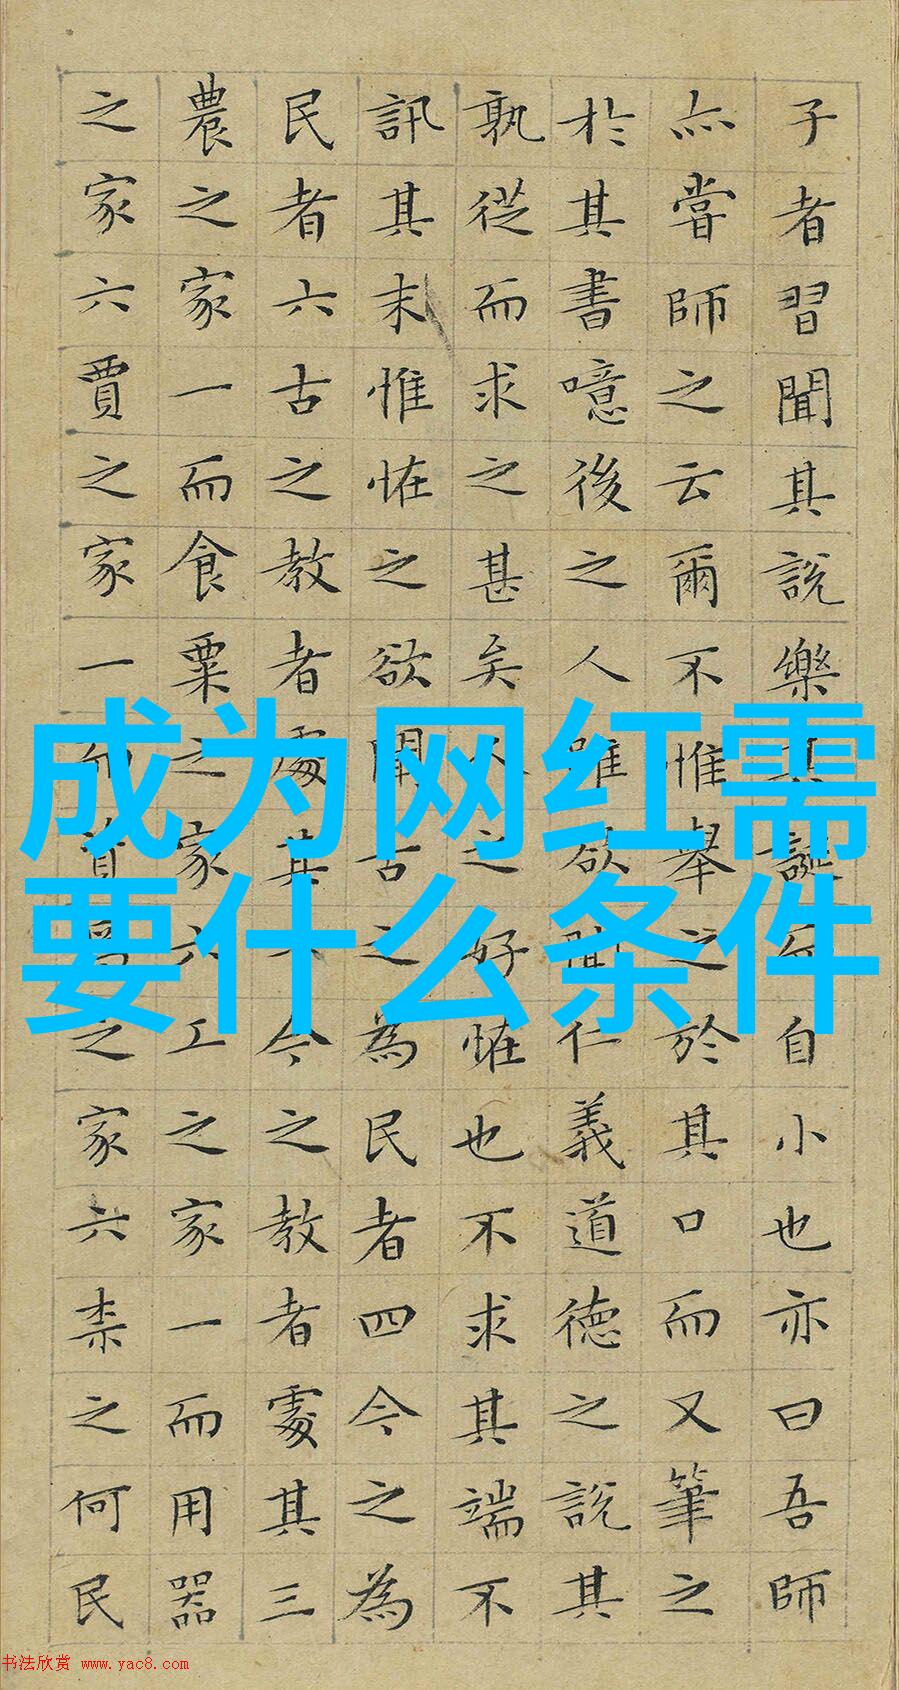 子者習聞其說樂其誕而自小也亦曰吾師
亦嘗師之云爾不惟舉之於其口而又筆之
於其書噫後之人雖欲聞仁義道德之說其
孰從而求之甚矣人之好怪也不求其端不
訊其末惟怪之欲聞古之為民者四今之為
民者六古之教者處其一今之教者處其三
農之家一而食粟之家六工之家一而用器
之家六賈之家一而資焉之家六柰之何民
成为网红需
要什么条件
书法欣赏 www.yac8.com